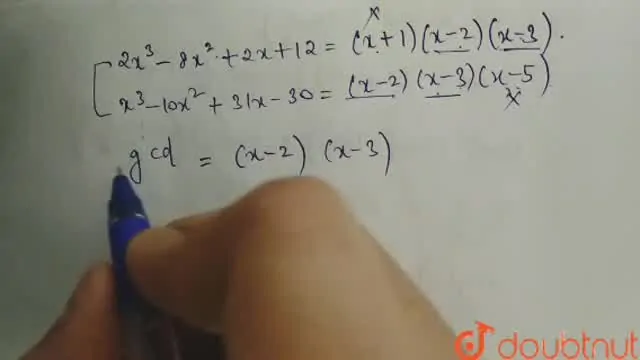 x
2x³ - 8x² + 2x + 12 = (x+1) (x-2) (x-3).
x³ - 10x² + 31x - 30 = (x-2) (x-3) (x-5)
x
gcd = (x-2) (x-3)
doubtnut